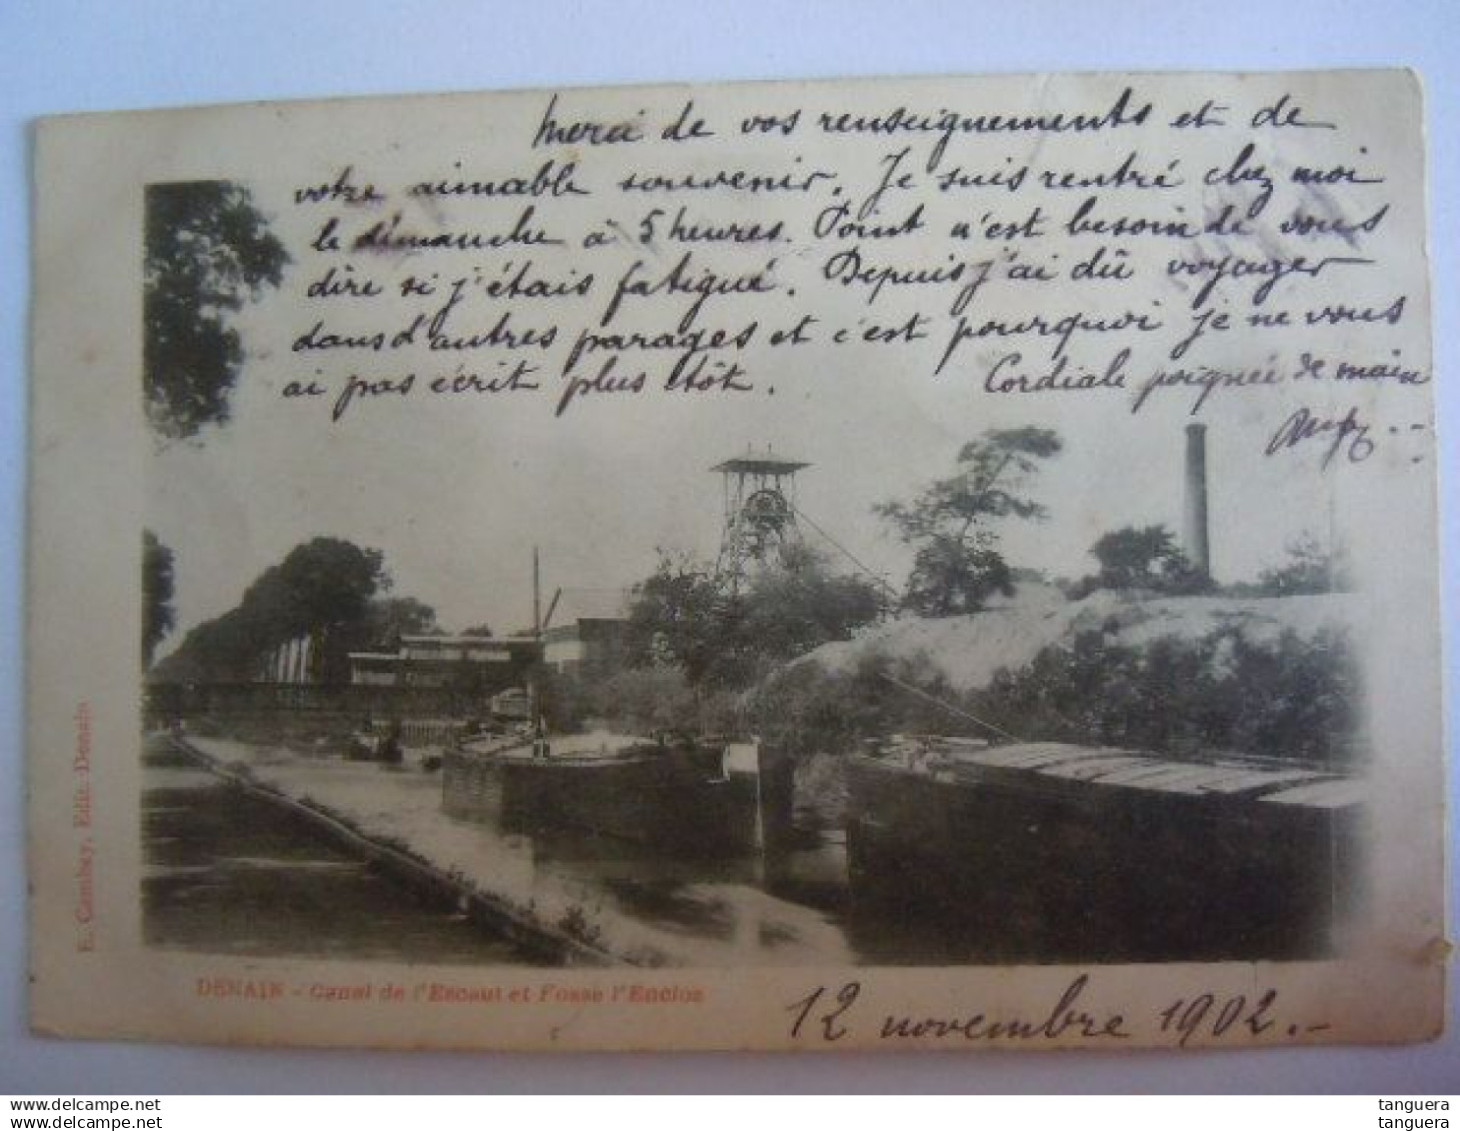 Merci de vos renseignements et de
votre aimable souvenir. Je suis rentré chez moi
le dimanche à 5 heures. Point n'est besoin de vous
dire si j'étais fatigué. Depuis j'ai dû voyager
dans d'autres parages et c'est pourquoi je ne vous
ai pas écrit plus tôt. Cordiale poignée de main
E. Cambay, Edit. Denain
DENAIN - Canal de l'Escaut et Fosse l'Enclos
12 novembre 1902.-
tanguera
tanguera
tanguera
tanguera